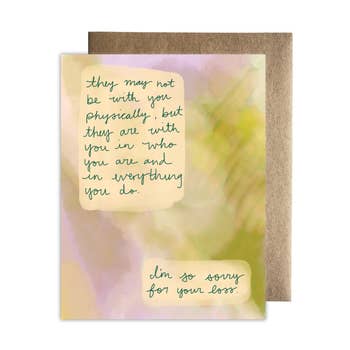 they may not
be with you
physically, but
they are with
you in who
you are and
in everything
you do.
I'm so sorry
for your loss